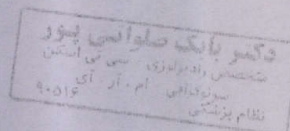 دکتر بابک صلواتی پور
متخصص رادیولوژی سی تی اسکن
سونوگرافی ام . آر . آی
نظام پزشکی ۹۰۵۱۶